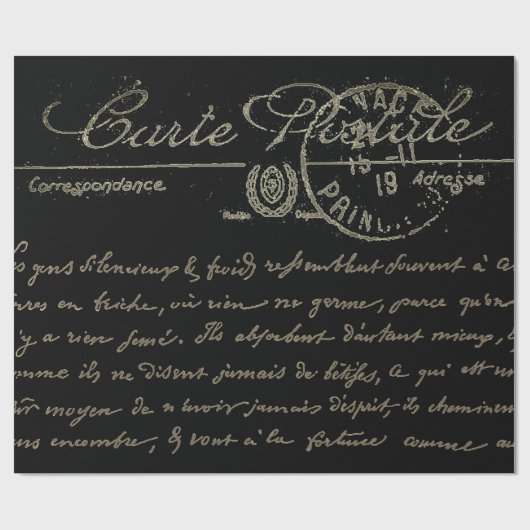 Carte Postale
NACO
2
15-11
19
PRIN
Correspondance
Adresse
gens silencieux & froids ressemblent souvent à ce
en friche, où rien ne germe, parce qu'on
y a rien semé. Ils absorbent d'autant mieux,
comme ils ne disent jamais de bêtises, ce qui est un
sûr moyen de n'avoir jamais d'esprit, ils cheminent
sans encombre, & vont à la fortune comme au